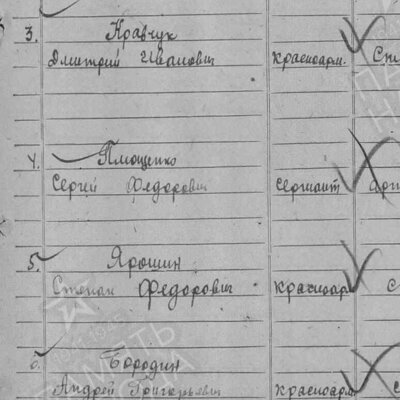 3. Кравчук
Дмитрий Иванович Красноарм.
4. Тмощенко
Сергий Федорович Сержант
5. Ярошин
Степан Федорович Красноарм
6. Бородин
Андрей Григорьевич Красноарм.